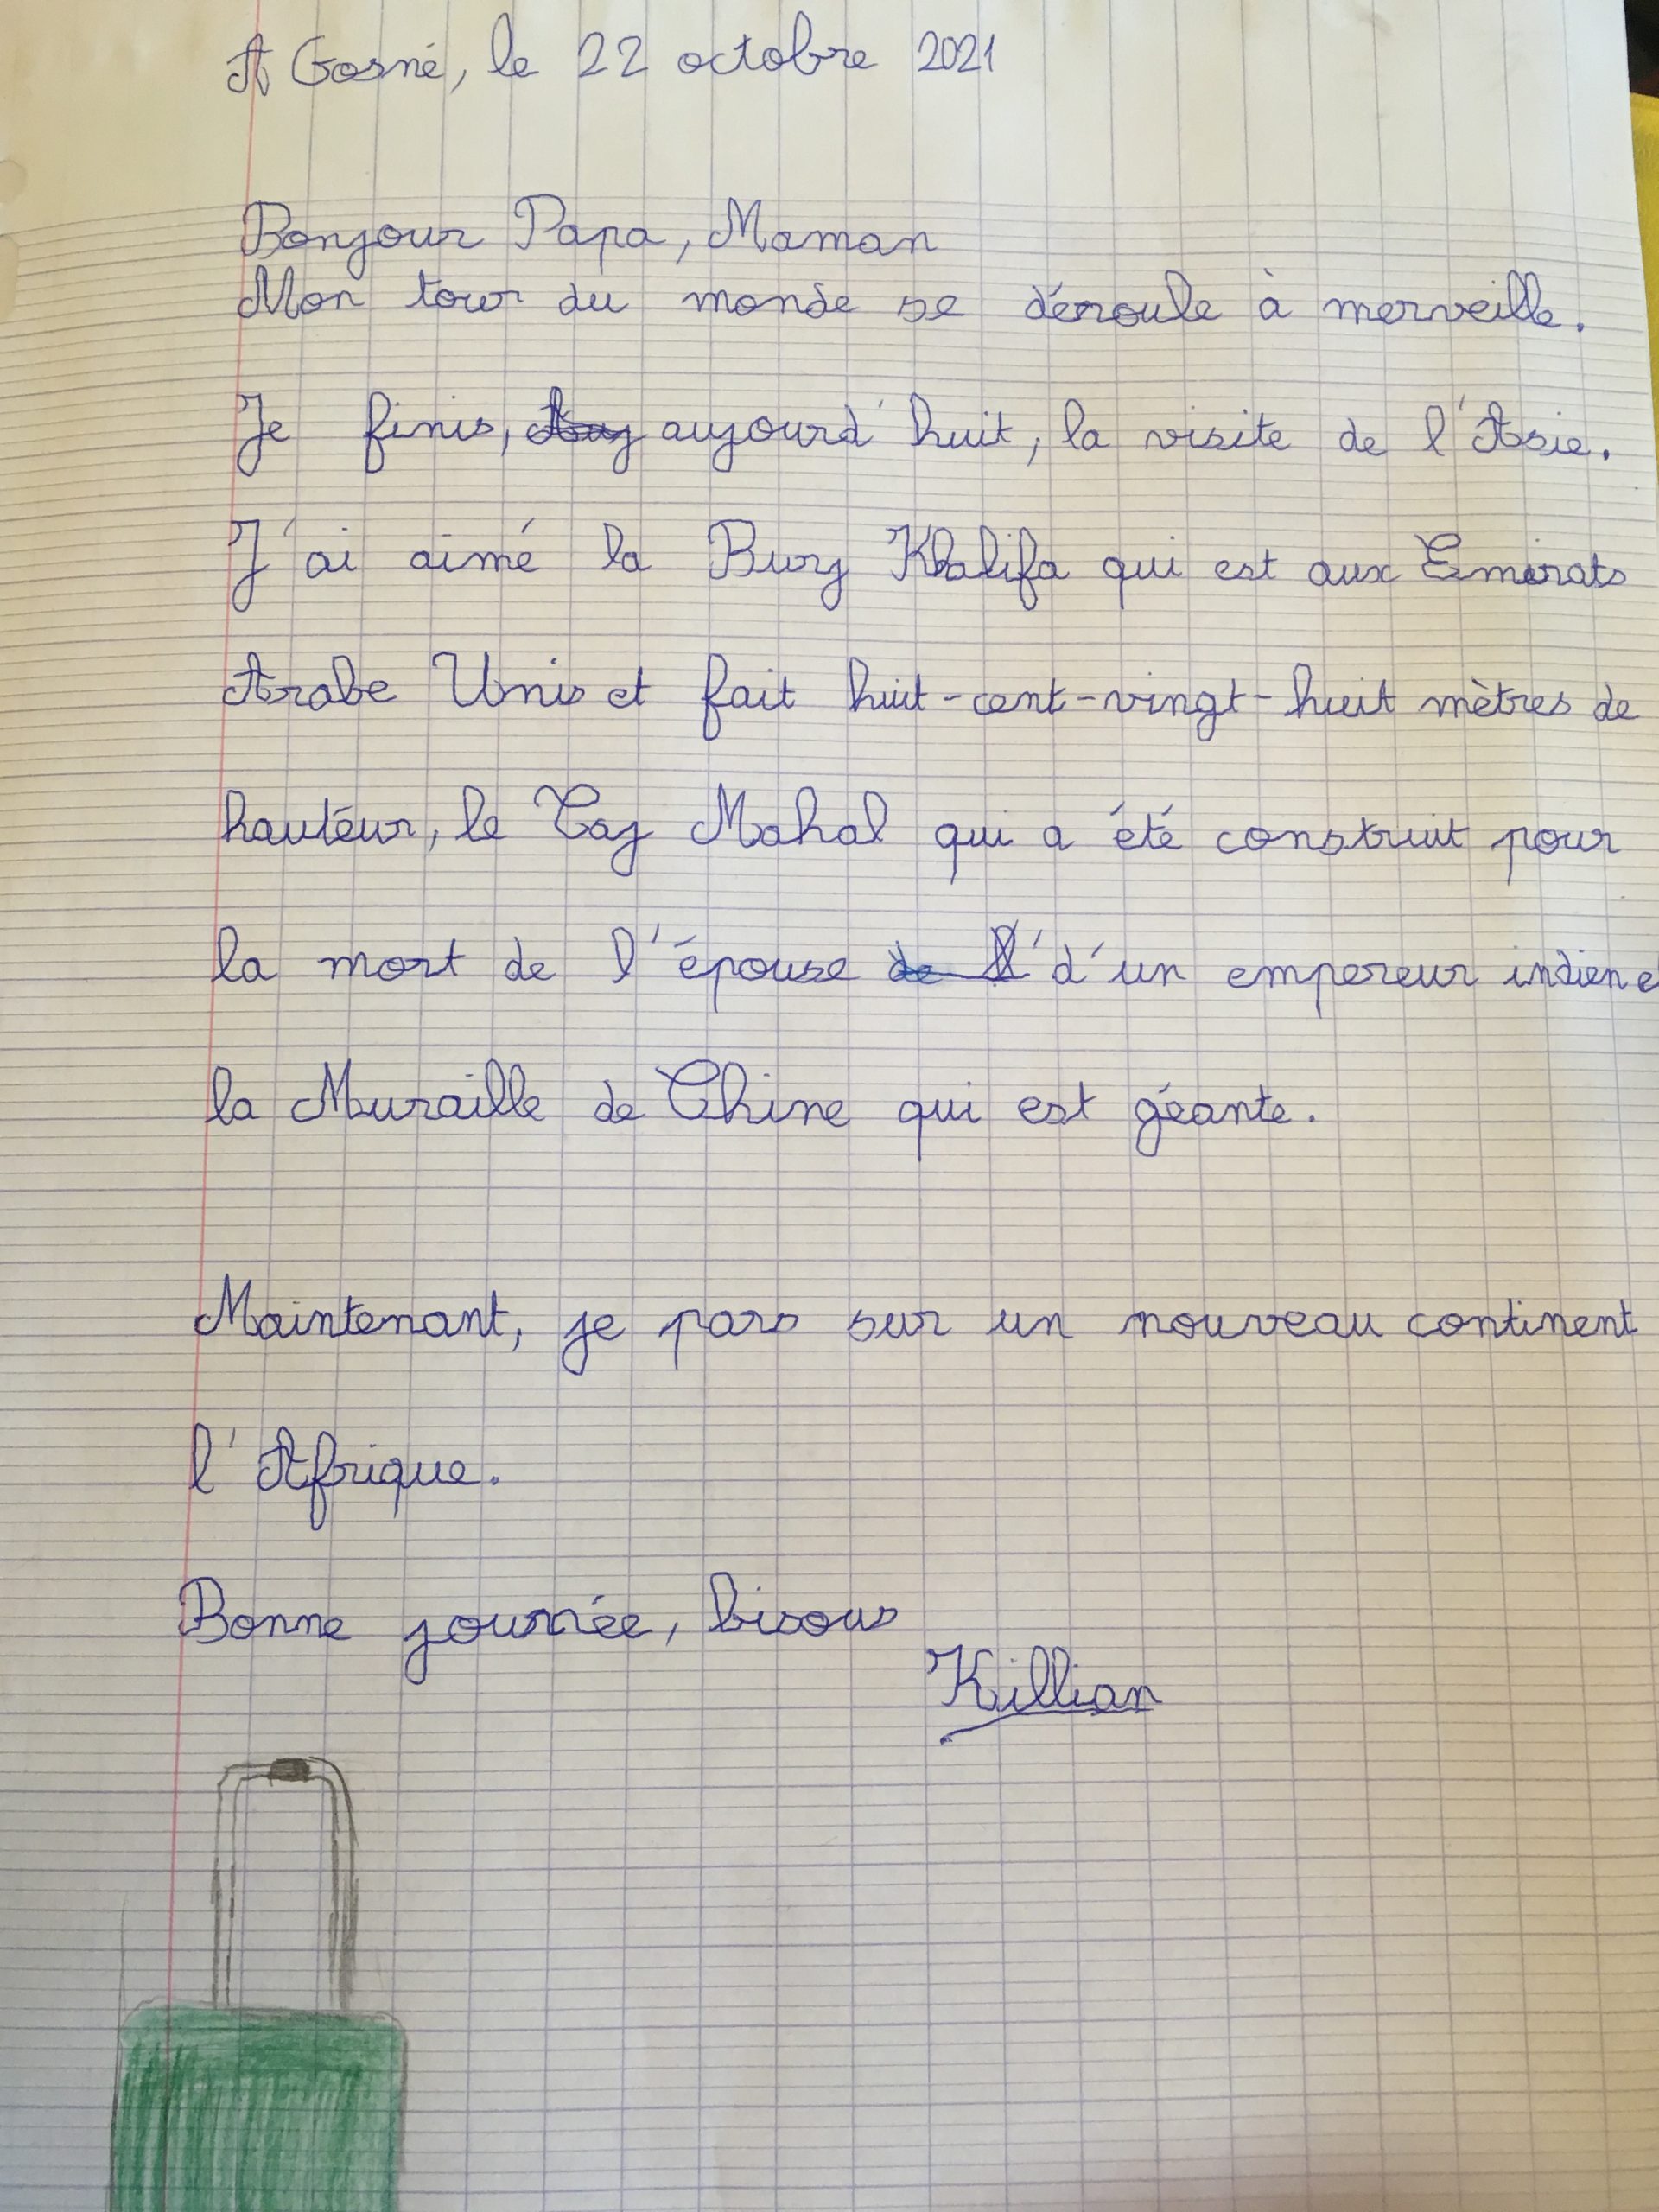 A Gosné, le 22 octobre 2021
Bonjour Papa, Maman
Mon tour du monde se déroule à merveille.
Je finis, aujourd'huit, la visite de l'Asie.
J'ai aimé la Burj Khalifa qui est aux Emirats
Arabe Unis et fait huit-cent-vingt-huit mètres de
hautéur, le Taj Mahal qui a été construit pour
la mort de l'épouse d'un empereur indien et
la Muraille de Chine qui est géante.
Maintenant, je pars sur un nouveau continent
l'Afrique.
Bonne journée, bisous
Killian